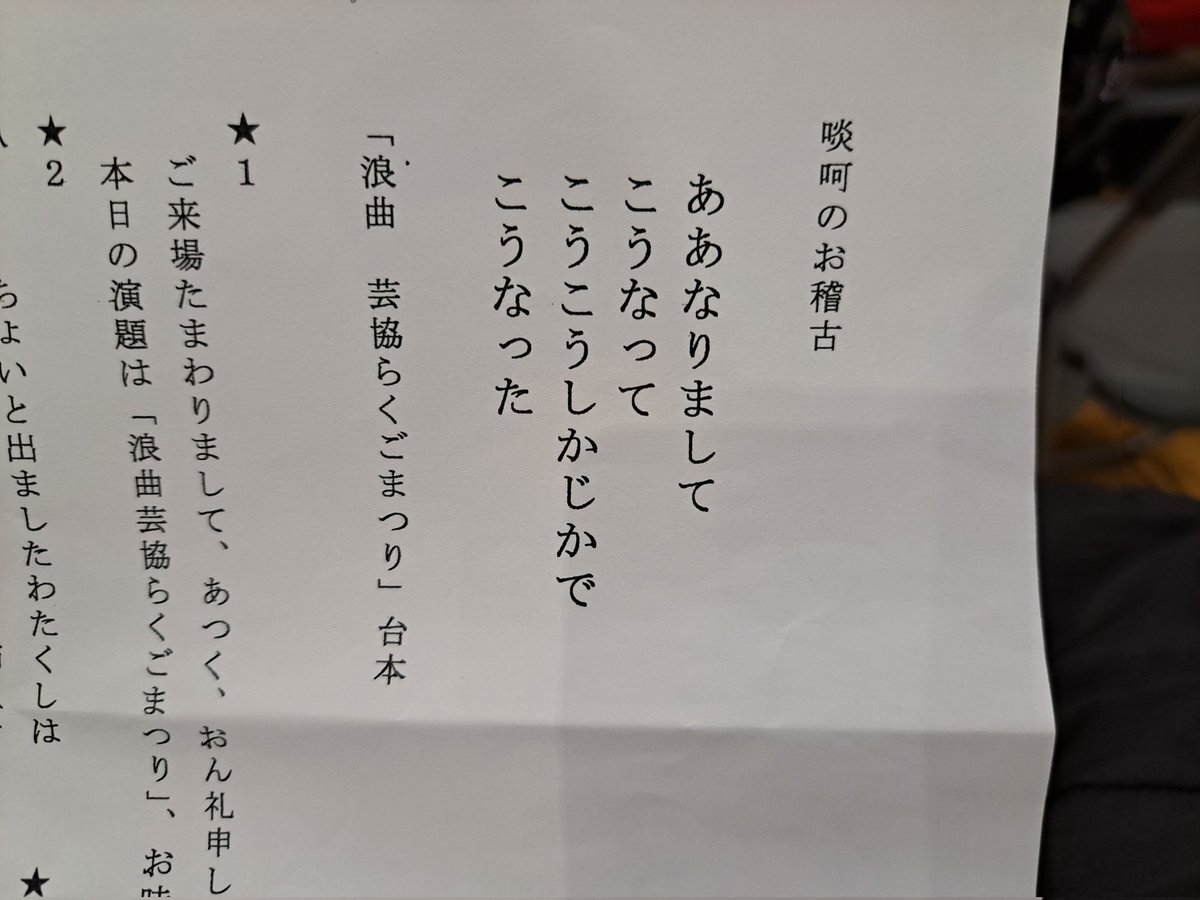 啖呵のお稽古
ああなりまして
こうなって
こうこうしかじかで
こうなった
「浪曲　芸協らくごまつり」台本
★1
ご来場たまわりまして、あつく、おん礼申し
本日の演題は「浪曲芸協らくごまつり」、お
★2
ちょいと出ましたわたくしは
★